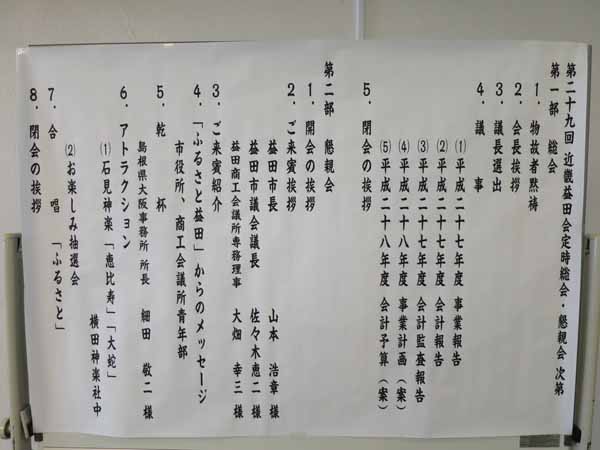 第二十九回 近畿益田会定時総会・懇親会 次第
第一部 総会
1．物故者黙祷
2．会長挨拶
3．議長選出
4．議 事
⑴ 平成二十七年度 事業報告
⑵ 平成二十七年度 会計報告
⑶ 平成二十七年度 会計監査報告
⑷ 平成二十八年度 事業計画（案）
⑸ 平成二十八年度 会計予算（案）
5．閉会の挨拶
第二部 懇親会
1．開会の挨拶
2．ご来賓挨拶
益田市長 山本 浩章様
益田市議会議長 佐々木恵二様
益田商工会議所専務理事 大畑 幸三様
3．ご来賓紹介
4．「ふるさと益田」からのメッセージ
市役所、商工会議所青年部
5．乾 杯
島根県大阪事務所 所長 細田 敬二様
6．アトラクション
⑴ 石見神楽「恵比寿」「大蛇」
横田神楽社中
⑵ お楽しみ抽選会
7．合 唱 「ふるさと」
8．閉会の挨拶